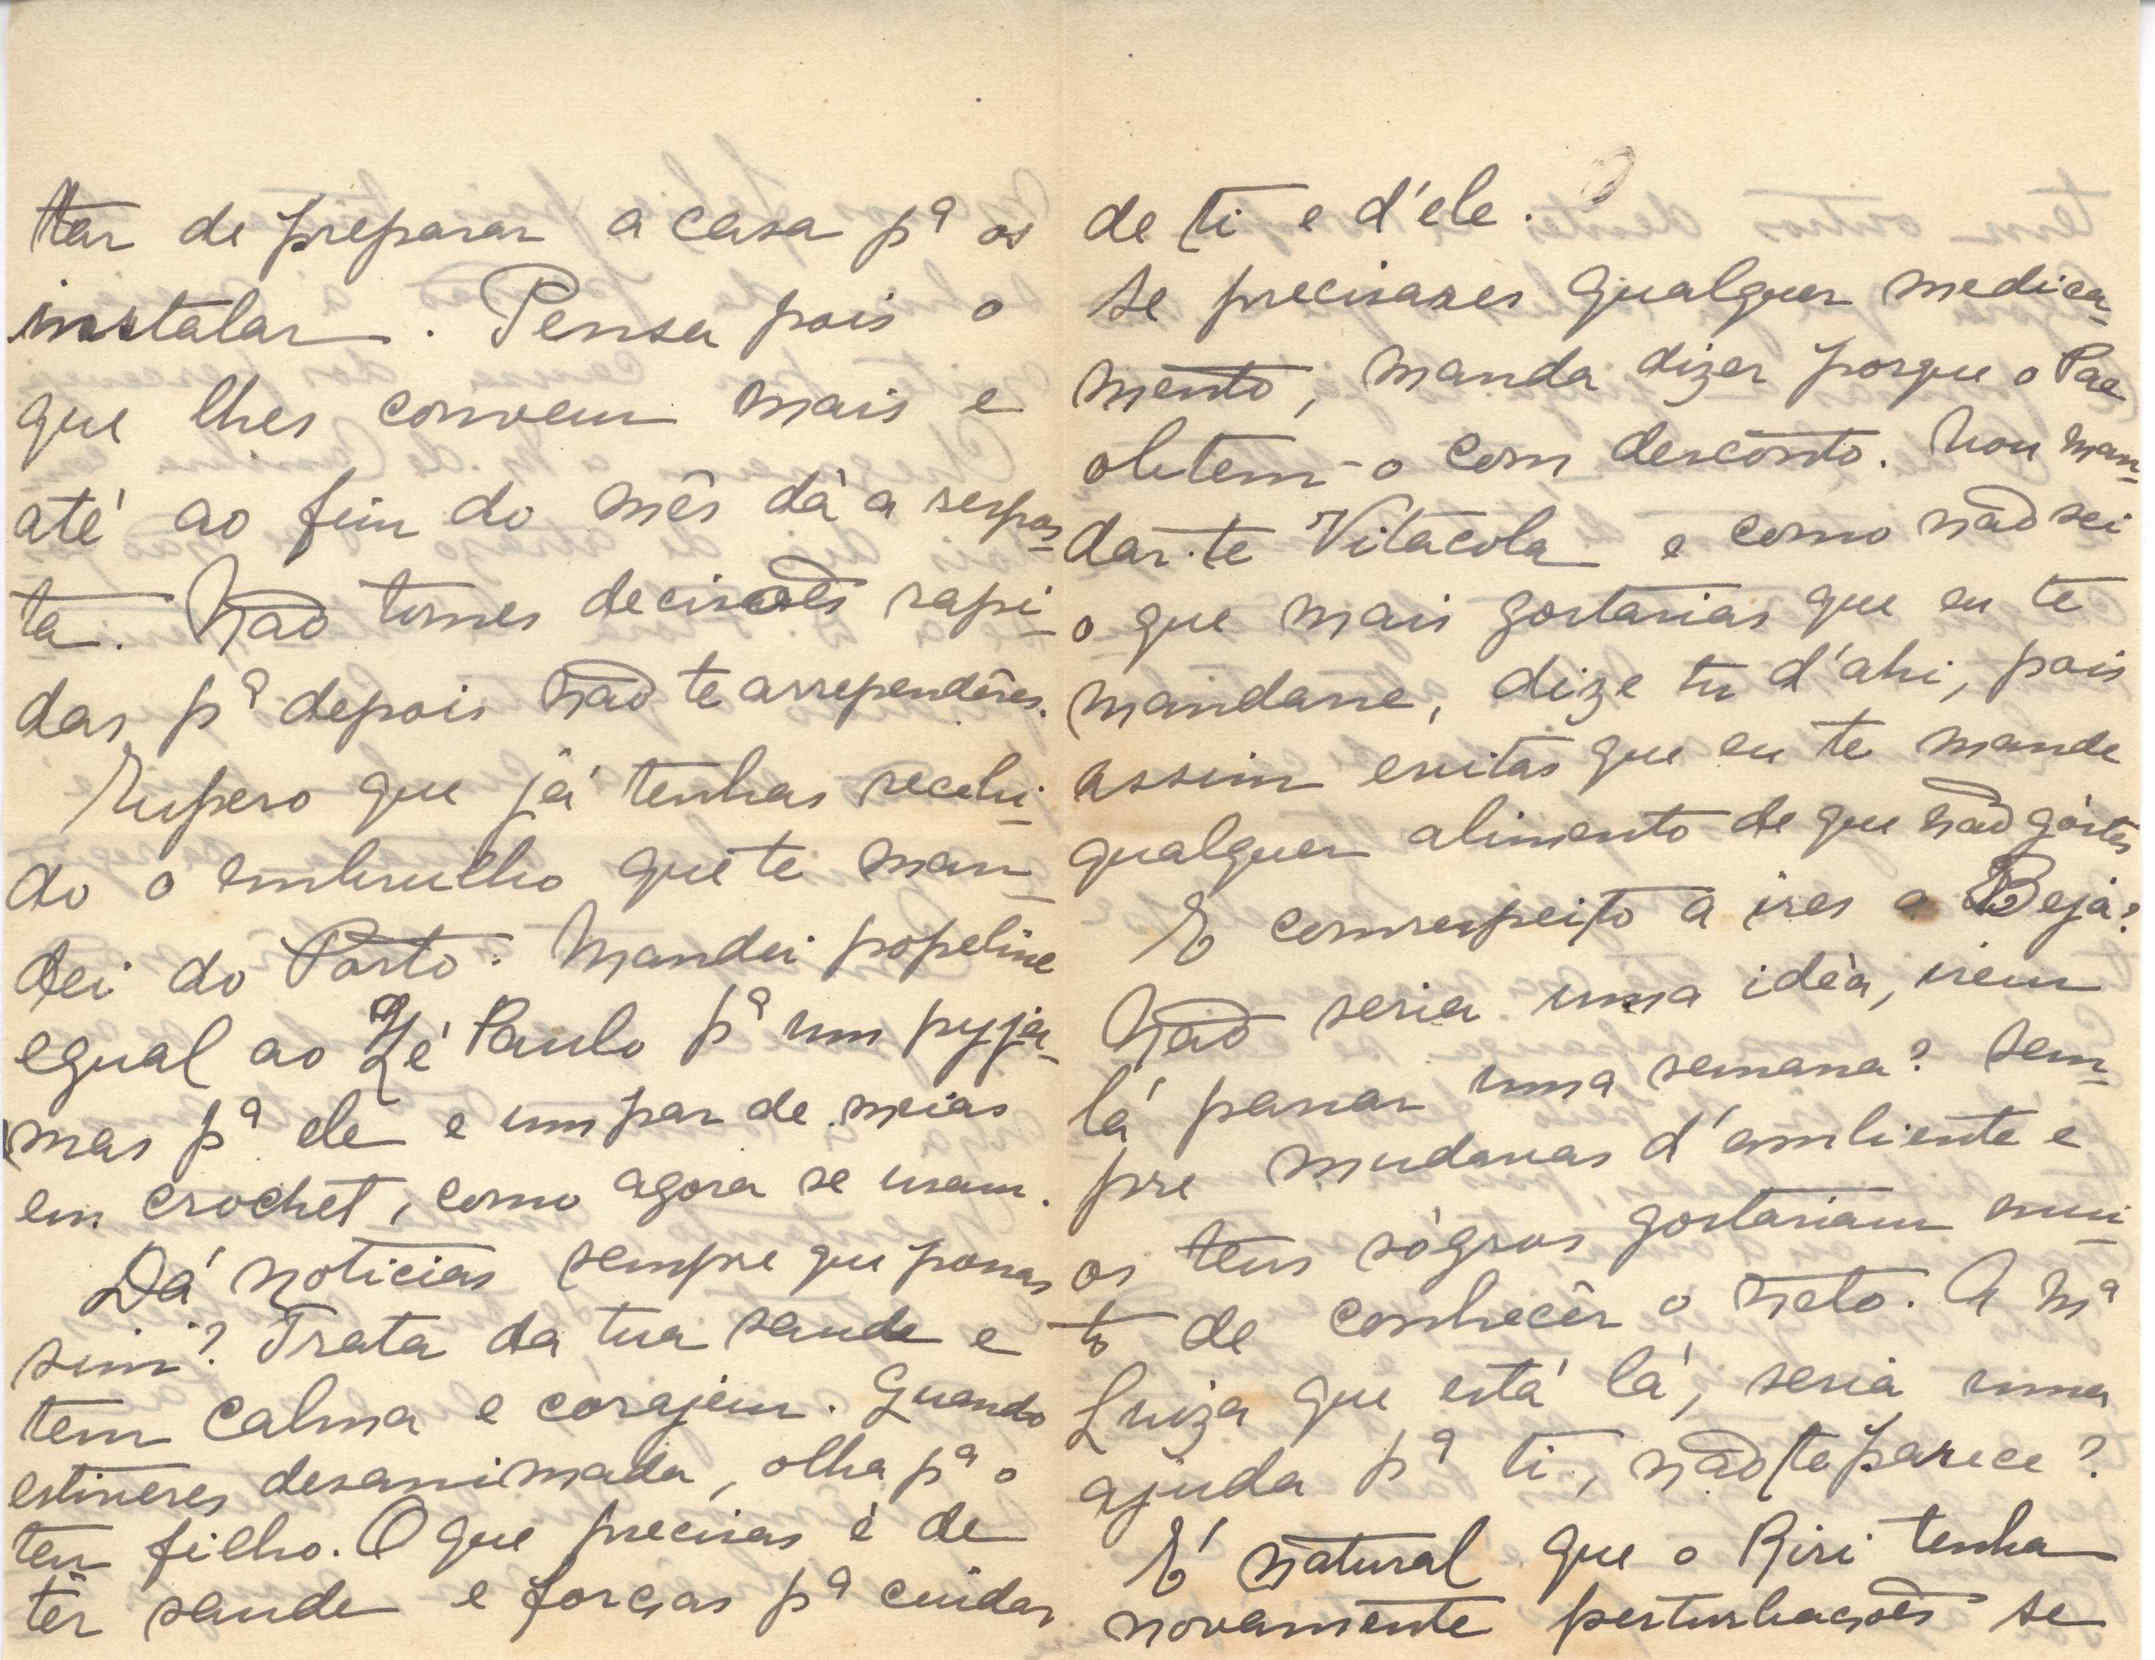 tar de preparar a casa pª os
instalar. Pensa pois o
que lhes convem mais e
até ao fim do mês dà a respos-
ta. Não tomes decisões rapi-
das pª depois não te arrependêres.
Espero que já tenhas recebi-
do o embrulho que te man-
dei do Porto. Mandei popeline
egual ao Zé Paulo pª um pyja-
mas pª ele e um par de meias
em crochet, como agora se usam.
Dá noticias sempre que possas
sim? Trata da tua saude e
tem calma e corajem. Quando
estiveres desanimada, olha pª o
teu filho. O que precisas é de
têr saude e forças pª cuidar
de ti e d'ele.
Se precisares qualquer medica-
mento, manda dizer porque o Pae
obtem-o com desconto. Vou man-
dar-te Vitacola e como não sei
o que mais gostarias que eu te
mandane, dize tu d'ahi, pois
assim evitas que eu te mande
qualquer alimento de que não góstes
E com respeito a ires a Beja?
Não seria uma idèa, irem
lá passar uma semana? Sem-
pre mudavas d'ambiente e
os teus sògros gostariam mui-
to de conhecêr o neto. A Mª
Luiza que está lá, seria uma
ajuda pª ti, não te parece?
É natural que o Riri tenha
novamente perturbações se